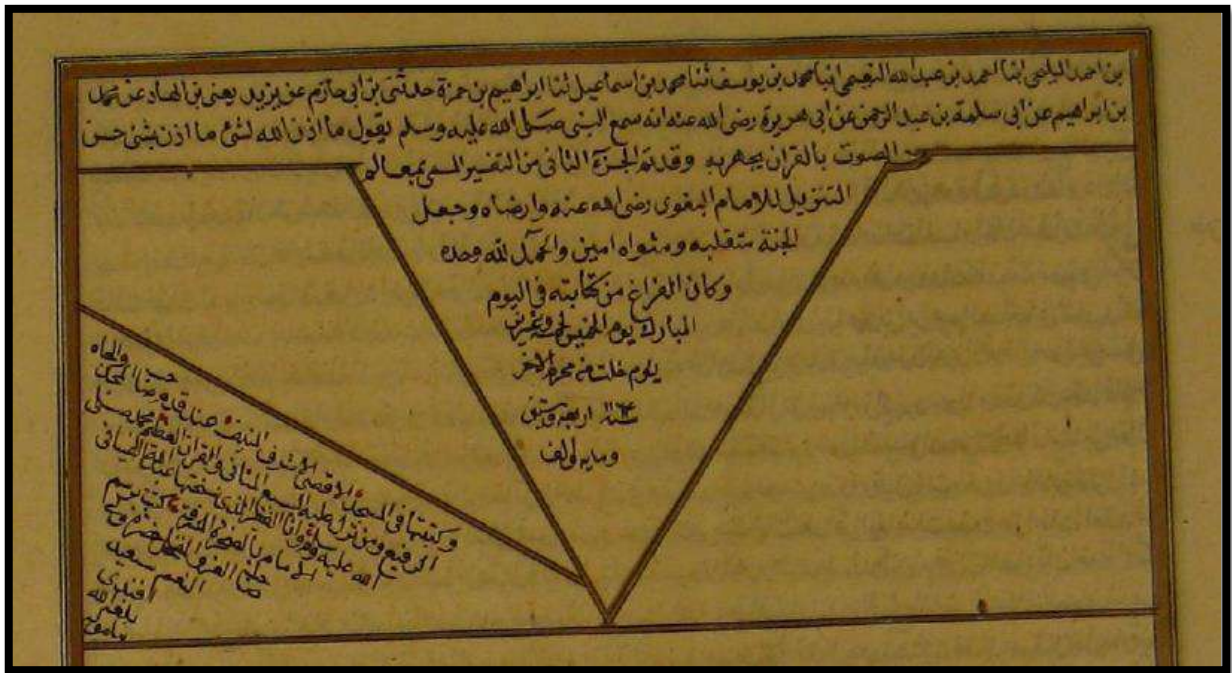 بن احمد المليحى ابنا احمد بن عبد الله النعيمى انبا محمد بن يوسف ثنا محمد بن اسماعيل ثنا ابراهيم بن حمزة حدثنى بن ابى حازم عن يزيد يعنى بن الهاد عن محمد
بن ابراهيم عن ابى سلمة بن عبد الرحمن عن ابى هريرة رضى الله عنه انه سمع النبى صلى الله عليه وسلم يقول ما اذن الله لشئ ما اذن لنبى حسن
الصوت بالقران يجهر به وقد تم الجزء الثانى من التفسير المسمى بمعالم
التنزيل للامام البغوى رضى الله عنه وارضاه وجعل
الجنة متقلبه ومثواه امين والحمد لله وحده
وكان الفراغ من كتابته فى اليوم
المبارك يوم الخميس لخمسة وعشرين
يوم خلت من محرم
سنة ١١٦٤ اربعة وستين
وميه والف
وكتبتها فى المسجد الاقصى الاشرف المنيف عند قدم
الرفيع ومن نزل عليه السبع المثانى والقران العظيم محمد صلى
الله عليه وسلم وانا الفقير الذى نسختها
الامام بالصخرة المشرفة كتبت برسم
صاحب العز و
النعم سعيد
افندى
بلغه الله